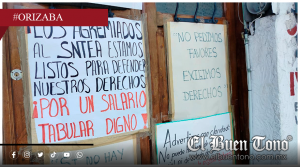 #ORIZABA
LOS AGREMIADOS
AL SNTEA ESTAMOS
LISTOS PARA DEFENDER
NUESTROS DERECHOS
¡POR UN SALARIO
TABULAR DIGNO!
"NO PEDIMOS
FAVORES
EXIGIMOS
DERECHOS"
NO HAY
El Buen Tono